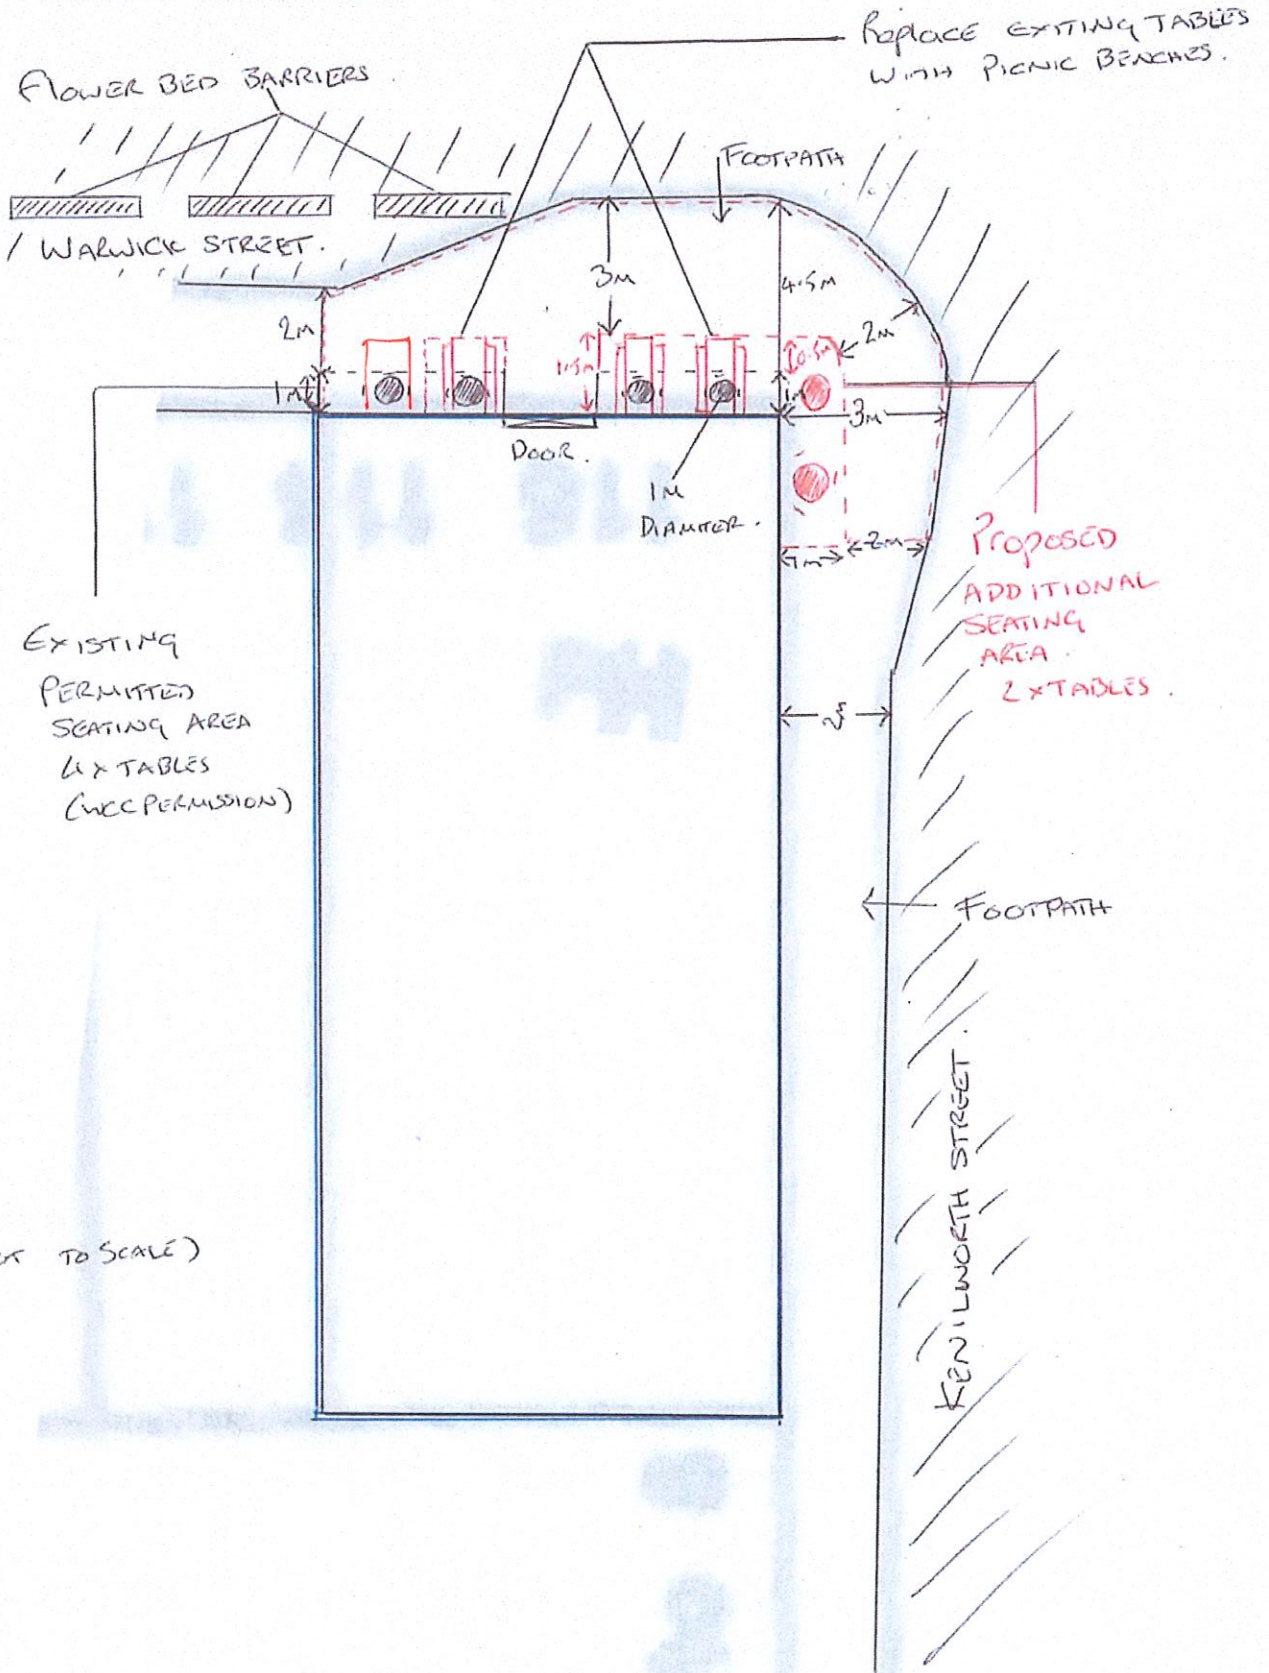 Replace EXITING TABLES
WITH PICNIC BENCHES.
FLOWER BED BARRIERS.
FOOTPATH
WARWICK STREET.
3M
4.5M
2M
2M
1.5M
0.5M
1M
1M
3M
DOOR.
1M
DIAMTER.
1M
2M
PROPOSED
ADDITIONAL
SEATING
AREA.
2 x TABLES.
EXISTING
PERMITTED
SEATING AREA
4 x TABLES
(WCC PERMISSION)
FOOTPATH
KENILWORTH STREET.
TO SCALE)